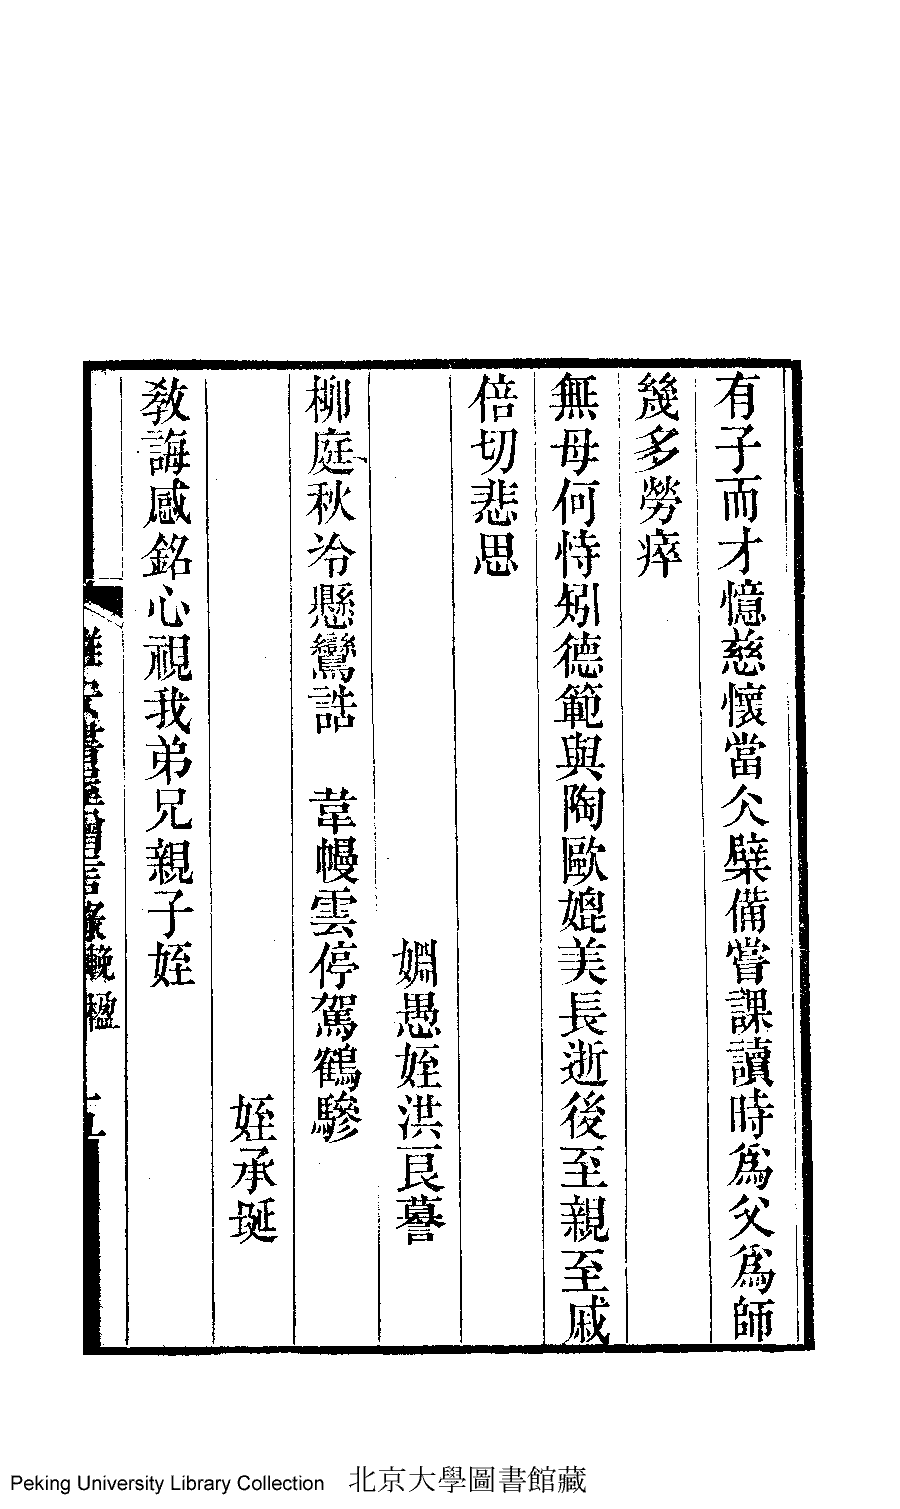 有子而才憶慈懷當仌櫱備嘗課讀時爲父爲師
幾多勞瘁
無母何恃矧德範與陶歐媲美長逝後至親至戚
倍切悲思
婣愚姪洪良謩
柳庭秋冷懸鸞誥　韋幔雲停駕鶴驂
姪承埏
教誨感銘心視我弟兄親子姪
輓楹
Peking University Library Collection 北京大學圖書館藏